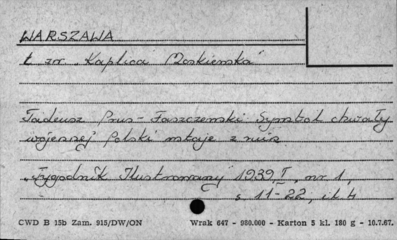 WARSZAWA
t. zw. "Kaplica Moskiewska"
Tadeusz Prus-Faszczewski Symbol chwały
wojennej Polski wstaje z ruin
"Tygodnik Ilustrowany" 1939 I, nr 1,
s 11-22, il. 4
CWD B 15b Zam. 915/DW/ON Wrak 647 - 980.000 - Karton 5 kl. 180 g - 10.7.67.